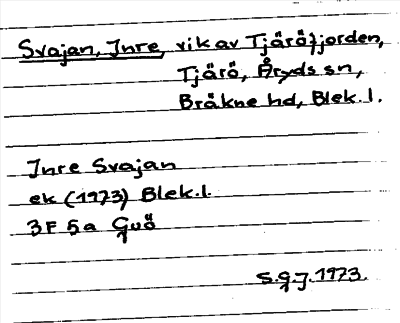 Svajan, Inre, vik av Tjäröfjorden,
Tjärö, Åryds sn,
Bräkne hd, Blek. l.
Inre Svajan
ek (1973) Blek. l.
3F 5a Guö
S.G.J. 1973.